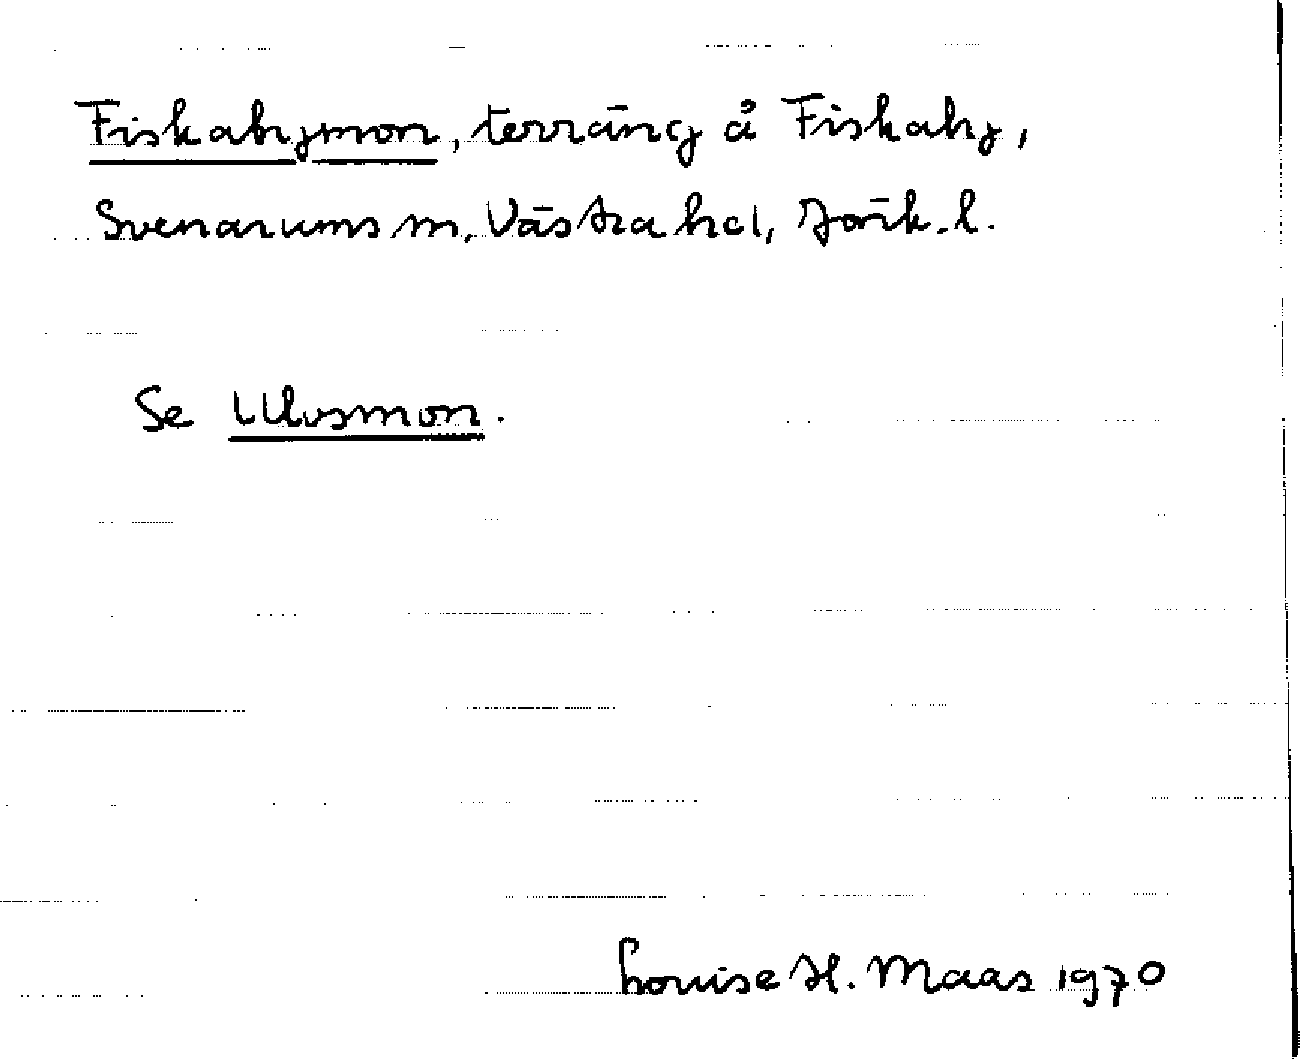 Fiskabymon, terräng å Fiskaby,
Svenarums sn, Västra hd, Jönk. l.
Se Ulvsmon.
Louise H. Maas 1970